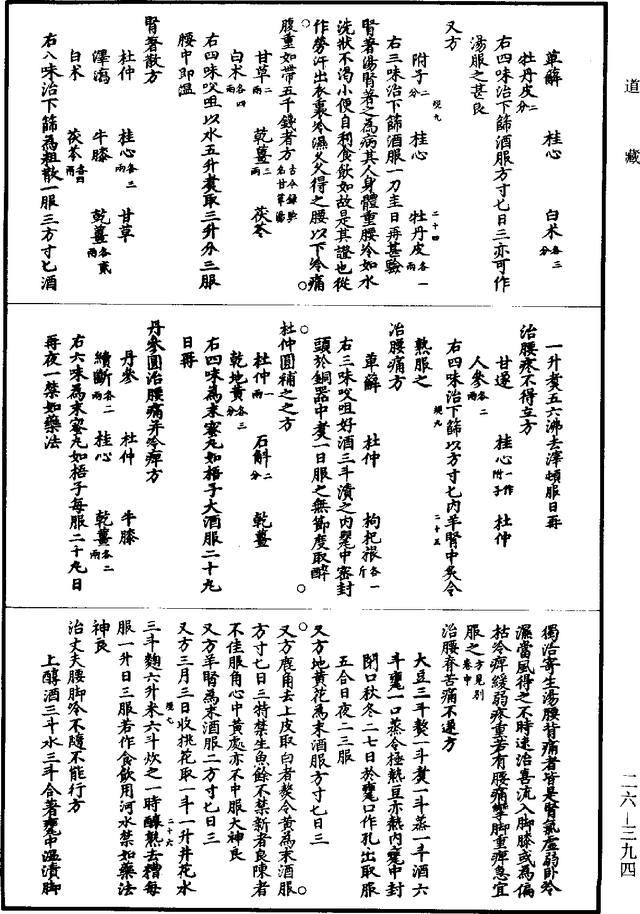 道藏
萆薢　桂心　白朮各三分
牡丹皮二分
右四味治下篩酒服方寸匕日三亦可作
湯服之甚良
又方
附子二分　桂心　牡丹皮各一兩
右三味治下篩酒服一刀圭日再甚驗
腎著湯腎著之為病其人身體重腰冷如水
洗狀不渴小便自利食飲如故是其證也從
作勞汗出衣裏冷濕久久得之腰以下冷痛
腹重如帶五千錢者方古今錄驗名甘草湯
甘草二兩　乾薑三兩　茯苓
白朮各四兩
右四味㕮咀以水五升煮取三升分三服
腰中即溫
腎著散方
杜仲　桂心各三兩　甘草
澤瀉　牛膝　乾薑各貳兩
白朮　茯苓各四兩
右八味治下篩為粗散一服三方寸匕酒
一升煮五六沸去滓頓服日再
治腰疼不得立方
甘遂　桂心一作附子　杜仲
人參各二兩
右四味治下篩以方寸匕內羊腎中炙令
熟服之
治腰痛方
萆薢　杜仲　枸杞根各一斤
右三味㕮咀好酒三斗漬之內甖中密封
頭於銅器中煮一日服之無節度取醉
杜仲圓補之之方
杜仲二兩　石斛二分　乾薑
乾地黃各三分
右四味為末蜜丸如梧子大酒服二十丸
日再
丹參圓治腰痛并冷痹方
丹參　杜仲　牛膝
續斷各三兩　桂心　乾薑各二兩
右六味為末蜜丸如梧子每服二十丸日
再夜一禁如藥法
獨活寄生湯腰背痛者皆是腎氣虛弱臥冷
濕當風得之不時速治喜流入腳膝或為偏
枯冷痹緩弱疼重若有腰痛攣腳重痹急宜
服之方見別卷中
治腰脊苦痛不遂方
大豆三斗熬一斗煮一斗蒸一斗酒六
斗甕一口蒸令極熱豆亦熱內甕中封
閉口秋冬二七日於甕口作孔出取服
五合日夜二三服
又方地黃花為末酒服方寸匕日三
又方鹿角去上皮取白者熬令黃為末酒服
方寸匕日三特禁生魚餘不禁新者良陳者
不佳服角心中黃處亦不中服大神良
又方羊腎為末酒服二方寸匕日三
又方三月三日收桃花取一斗一升井花水
三斗麴六升米六斗炊之一時醲熟去糟每
服一升日三服若作食飲用河水禁如藥法
神良
治丈夫腰腳冷不隨不能行方
上醇酒三斗水三斗合著甕中溫漬腳
二六－三九四